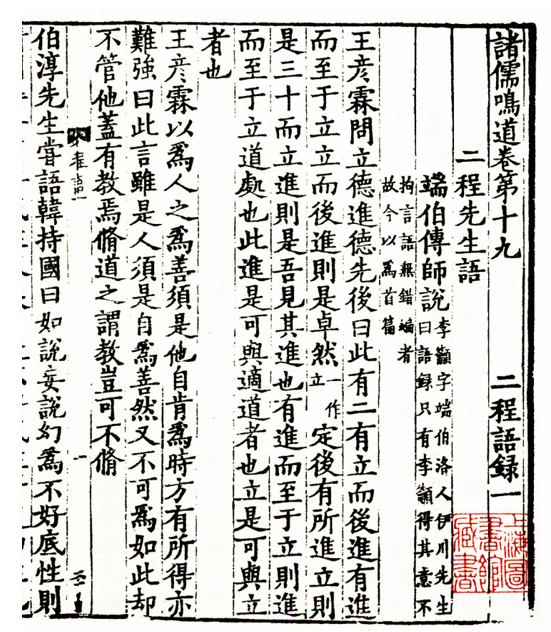 諸儒鳴道卷第十九 二程語録一
二程先生語
端伯傳師說
李籲字端伯洛人伊川先生
曰語録只有李籲得其意不
拘言語無錯編者
故今以爲首篇
王彦霖問立德進德先後曰此有二有立而後進有進
而至于立立而後進則是卓然一作立定後有所進立則
是三十而立進則是吾見其進也有進而至于立則進
而至于立道處也此進是可與適道者也立是可與立
者也
王彦霖以爲人之爲善須是他自肯爲時方有所得亦
難強曰此言雖是人須是自爲善然又不可爲如此却
不管他蓋有教焉脩道之謂教豈可不脩
伯淳先生甞語韓持國曰如說妄說幻爲不好底性則
上海圖書館藏書